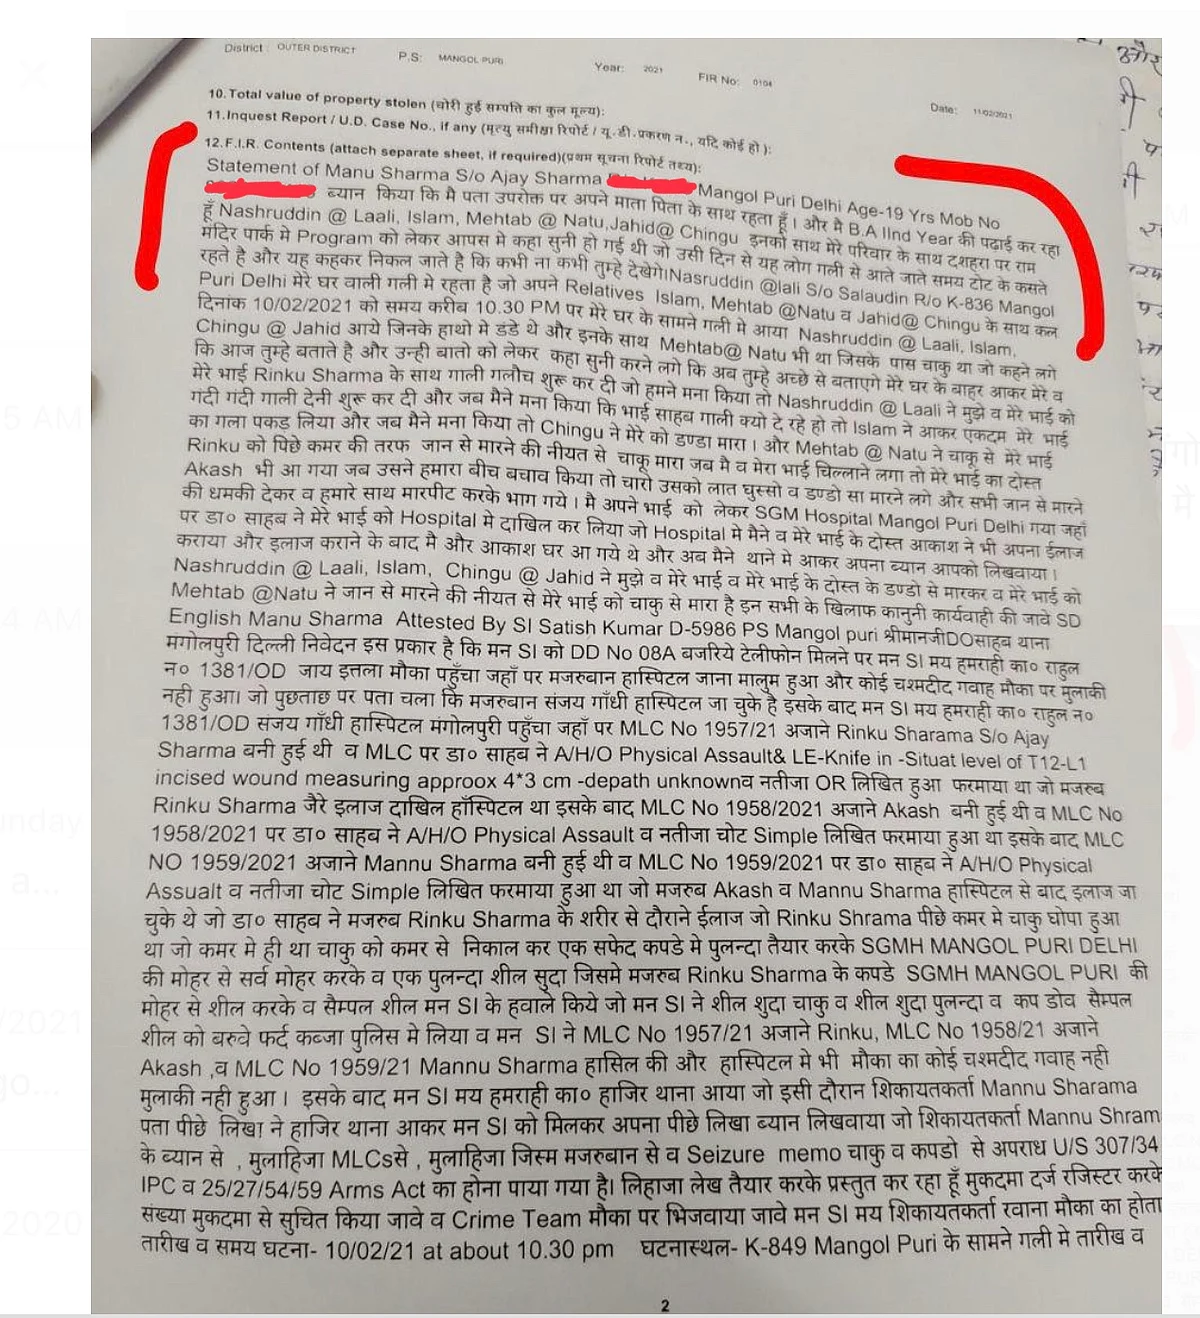 District : OUTER DISTRICT P.S: MANGOL PURI Year: 2021 FIR No: 0104 Date: 11/02/2021
10. Total value of property stolen (चोरी हुई सम्पत्ति का कुल मूल्य):
11. Inquest Report / U.D. Case No., if any (मृत्यु समीक्षा रिपोर्ट / यू.डी.प्रकरण न., यदि कोई हो ):
12. F.I.R. Contents (attach separate sheet, if required)(प्रथम सूचना रिपोर्ट तथ्य):
Statement of Manu Sharma S/o Ajay Sharma Mangol Puri Delhi Age-19 Yrs Mob No
ब्यान किया कि मै पता उपरोक्त पर अपने माता पिता के साथ रहता हूँ । और मै B.A IInd Year की पढाई कर रहा
हूँ Nashruddin @ Laali, Islam, Mehtab @ Natu,Jahid@ Chingu इनको साथ मेरे परिवार के साथ दशहरा पर राम
मंदिर पार्क मे Program को लेकर आपस मे कहा सुनी हो गई थी जो उसी दिन से यह लोग गली से आते जाते समय टोट के कसते
रहते है और यह कहकर निकल जाते है कि कभी ना कभी तुम्हे देखेगे।Nasruddin @lali S/o Salaudin R/o K-836 Mangol
Puri Delhi मेरे घर वाली गली मे रहता है जो अपने Relatives Islam, Mehtab @Natu व Jahid@ Chingu के साथ कल
दिनांक 10/02/2021 को समय करीब 10.30 PM पर मेरे घर के सामने गली मे आया Nashruddin @ Laali, Islam,
Chingu @ Jahid आये जिनके हाथो मे डंडे थे और इनके साथ Mehtab@ Natu भी था जिसके पास चाकु था जो कहने लगे
कि आज तुम्हे बताते है और उन्ही बातो को लेकर कहा सुनी करने लगे कि अब तुम्हे अच्छे से बताएगे मेरे घर के बाहर आकर मेरे व
मेरे भाई Rinku Sharma के साथ गाली गलौच शुरू कर दी जो हमने मना किया तो Nashruddin @ Laali ने मुझे व मेरे भाई को
गंदी गंदी गाली देनी शुरू कर दी और जब मैने मना किया कि भाई साहब गाली क्यो दे रहे हो तो Islam ने आकर एकदम मेरे भाई
का गला पकड लिया और जब मैने मना किया तो Chingu ने मेरे को डण्डा मारा । और Mehtab @ Natu ने चाकू से मेरे भाई
Rinku को पिछे कमर की तरफ जान से मारने की नीयत से चाकू मारा जब मै व मेरा भाई चिल्लाने लगा तो मेरे भाई का दोस्त
Akash भी आ गया जब उसने हमारा बीच बचाव किया तो चारो उसको लात घुस्सो व डण्डो सा मारने लगे और सभी जान से मारने
की धमकी देकर व हमारे साथ मारपीट करके भाग गये । मै अपने भाई को लेकर SGM Hospital Mangol Puri Delhi गया जहाँ
पर डा० साहब ने मेरे भाई को Hospital मे दाखिल कर लिया जो Hospital मे मैने व मेरे भाई के दोस्त आकाश ने भी अपना ईलाज
कराया और इलाज कराने के बाद मै और आकाश घर आ गये थे और अब मैने थाने मे आकर अपना ब्यान आपको लिखवाया ।
Nashruddin @ Laali, Islam, Chingu @ Jahid ने मुझे व मेरे भाई व मेरे भाई के दोस्त के डण्डो से मारकर व मेरे भाई को
Mehtab @Natu ने जान से मारने की नीयत से मेरे भाई को चाकु से मारा है इन सभी के खिलाफ कानुनी कार्यवाही की जावे SD
English Manu Sharma Attested By SI Satish Kumar D-5986 PS Mangol puri श्रीमानजीDOसाहब थाना
मंगोलपुरी दिल्ली निवेदन इस प्रकार है कि मन SI को DD No 08A बजरिये टेलीफोन मिलने पर मन SI मय हमराही का० राहुल
न० 1381/OD जाय इत्तला मौका पहुँचा जहाँ पर मजरुबान हास्पिटल जाना मालुम हुआ और कोई चश्मदीद गवाह मौका पर मुलाकी
नही हुआ। जो पुछताछ पर पता चला कि मजरुबान संजय गाँधी हास्पिटल जा चुके है इसके बाद मन SI मय हमराही का० राहुल न०
1381/OD संजय गाँधी हास्पिटल मंगोलपुरी पहुँचा जहाँ पर MLC No 1957/21 अजाने Rinku Sharama S/o Ajay
Sharma बनी हुई थी व MLC पर डा० साहब ने A/H/O Physical Assault& LE-Knife in -Situat level of T12-L1
incised wound measuring approox 4*3 cm -depath unknownव नतीजा OR लिखित हुआ फरमाया था जो मजरुब
Rinku Sharma जैरे इलाज दाखिल हॉस्पिटल था इसके बाद MLC No 1958/2021 अजाने Akash बनी हुई थी व MLC No
1958/2021 पर डा० साहब ने A/H/O Physical Assault व नतीजा चोट Simple लिखित फरमाया हुआ था इसके बाद MLC
NO 1959/2021 अजाने Mannu Sharma बनी हुई थी व MLC No 1959/2021 पर डा० साहब ने A/H/O Physical
Assualt व नतीजा चोट Simple लिखित फरमाया हुआ था जो मजरुब Akash व Mannu Sharma हास्पिटल से बाद इलाज जा
चुके थे जो डा० साहब ने मजरुब Rinku Sharma के शरीर से दौराने ईलाज जो Rinku Shrama पीछे कमर मे चाकु घोपा हुआ
था जो कमर मे ही था चाकु को कमर से निकाल कर एक सफेद कपडे मे पुलन्दा तैयार करके SGMH MANGOL PURI DELHI
की मोहर से सर्व मोहर करके व एक पुलन्दा शील सुदा जिसमे मजरुब Rinku Sharma के कपडे SGMH MANGOL PURI की
मोहर से शील करके व सैम्पल शील मन SI के हवाले किये जो मन SI ने शील शुदा चाकु व शील शुदा पुलन्दा व कप डोव सैम्पल
शील को बरुवे फर्द कब्जा पुलिस मे लिया व मन SI ने MLC No 1957/21 अजाने Rinku, MLC No 1958/21 अजाने
Akash ,व MLC No 1959/21 Mannu Sharma हासिल की और हास्पिटल मे भी मौका का कोई चश्मदीद गवाह नही
मुलाकी नही हुआ । इसके बाद मन SI मय हमराही का० हाजिर थाना आया जो इसी दौरान शिकायतकर्ता Mannu Sharama
पता पीछे लिखा ने हाजिर थाना आकर मन SI को मिलकर अपना पीछे लिखा ब्यान लिखवाया जो शिकायतकर्ता Mannu Shram
के ब्यान से , मुलाहिजा MLCsसे , मुलाहिजा जिस्म मजरुबान से व Seizure memo चाकु व कपडो से अपराध U/S 307/34
IPC व 25/27/54/59 Arms Act का होना पाया गया है। लिहाजा लेख तैयार करके प्रस्तुत कर रहा हूँ मुकदमा दर्ज रजिस्टर करके
संख्या मुकदमा से सुचित किया जावे व Crime Team मौका पर भिजवाया जावे मन SI मय शिकायतकर्ता रवाना मौका का होता
तारीख व समय घटना- 10/02/21 at about 10.30 pm घटनास्थल- K-849 Mangol Puri के सामने गली मे तारीख व
2